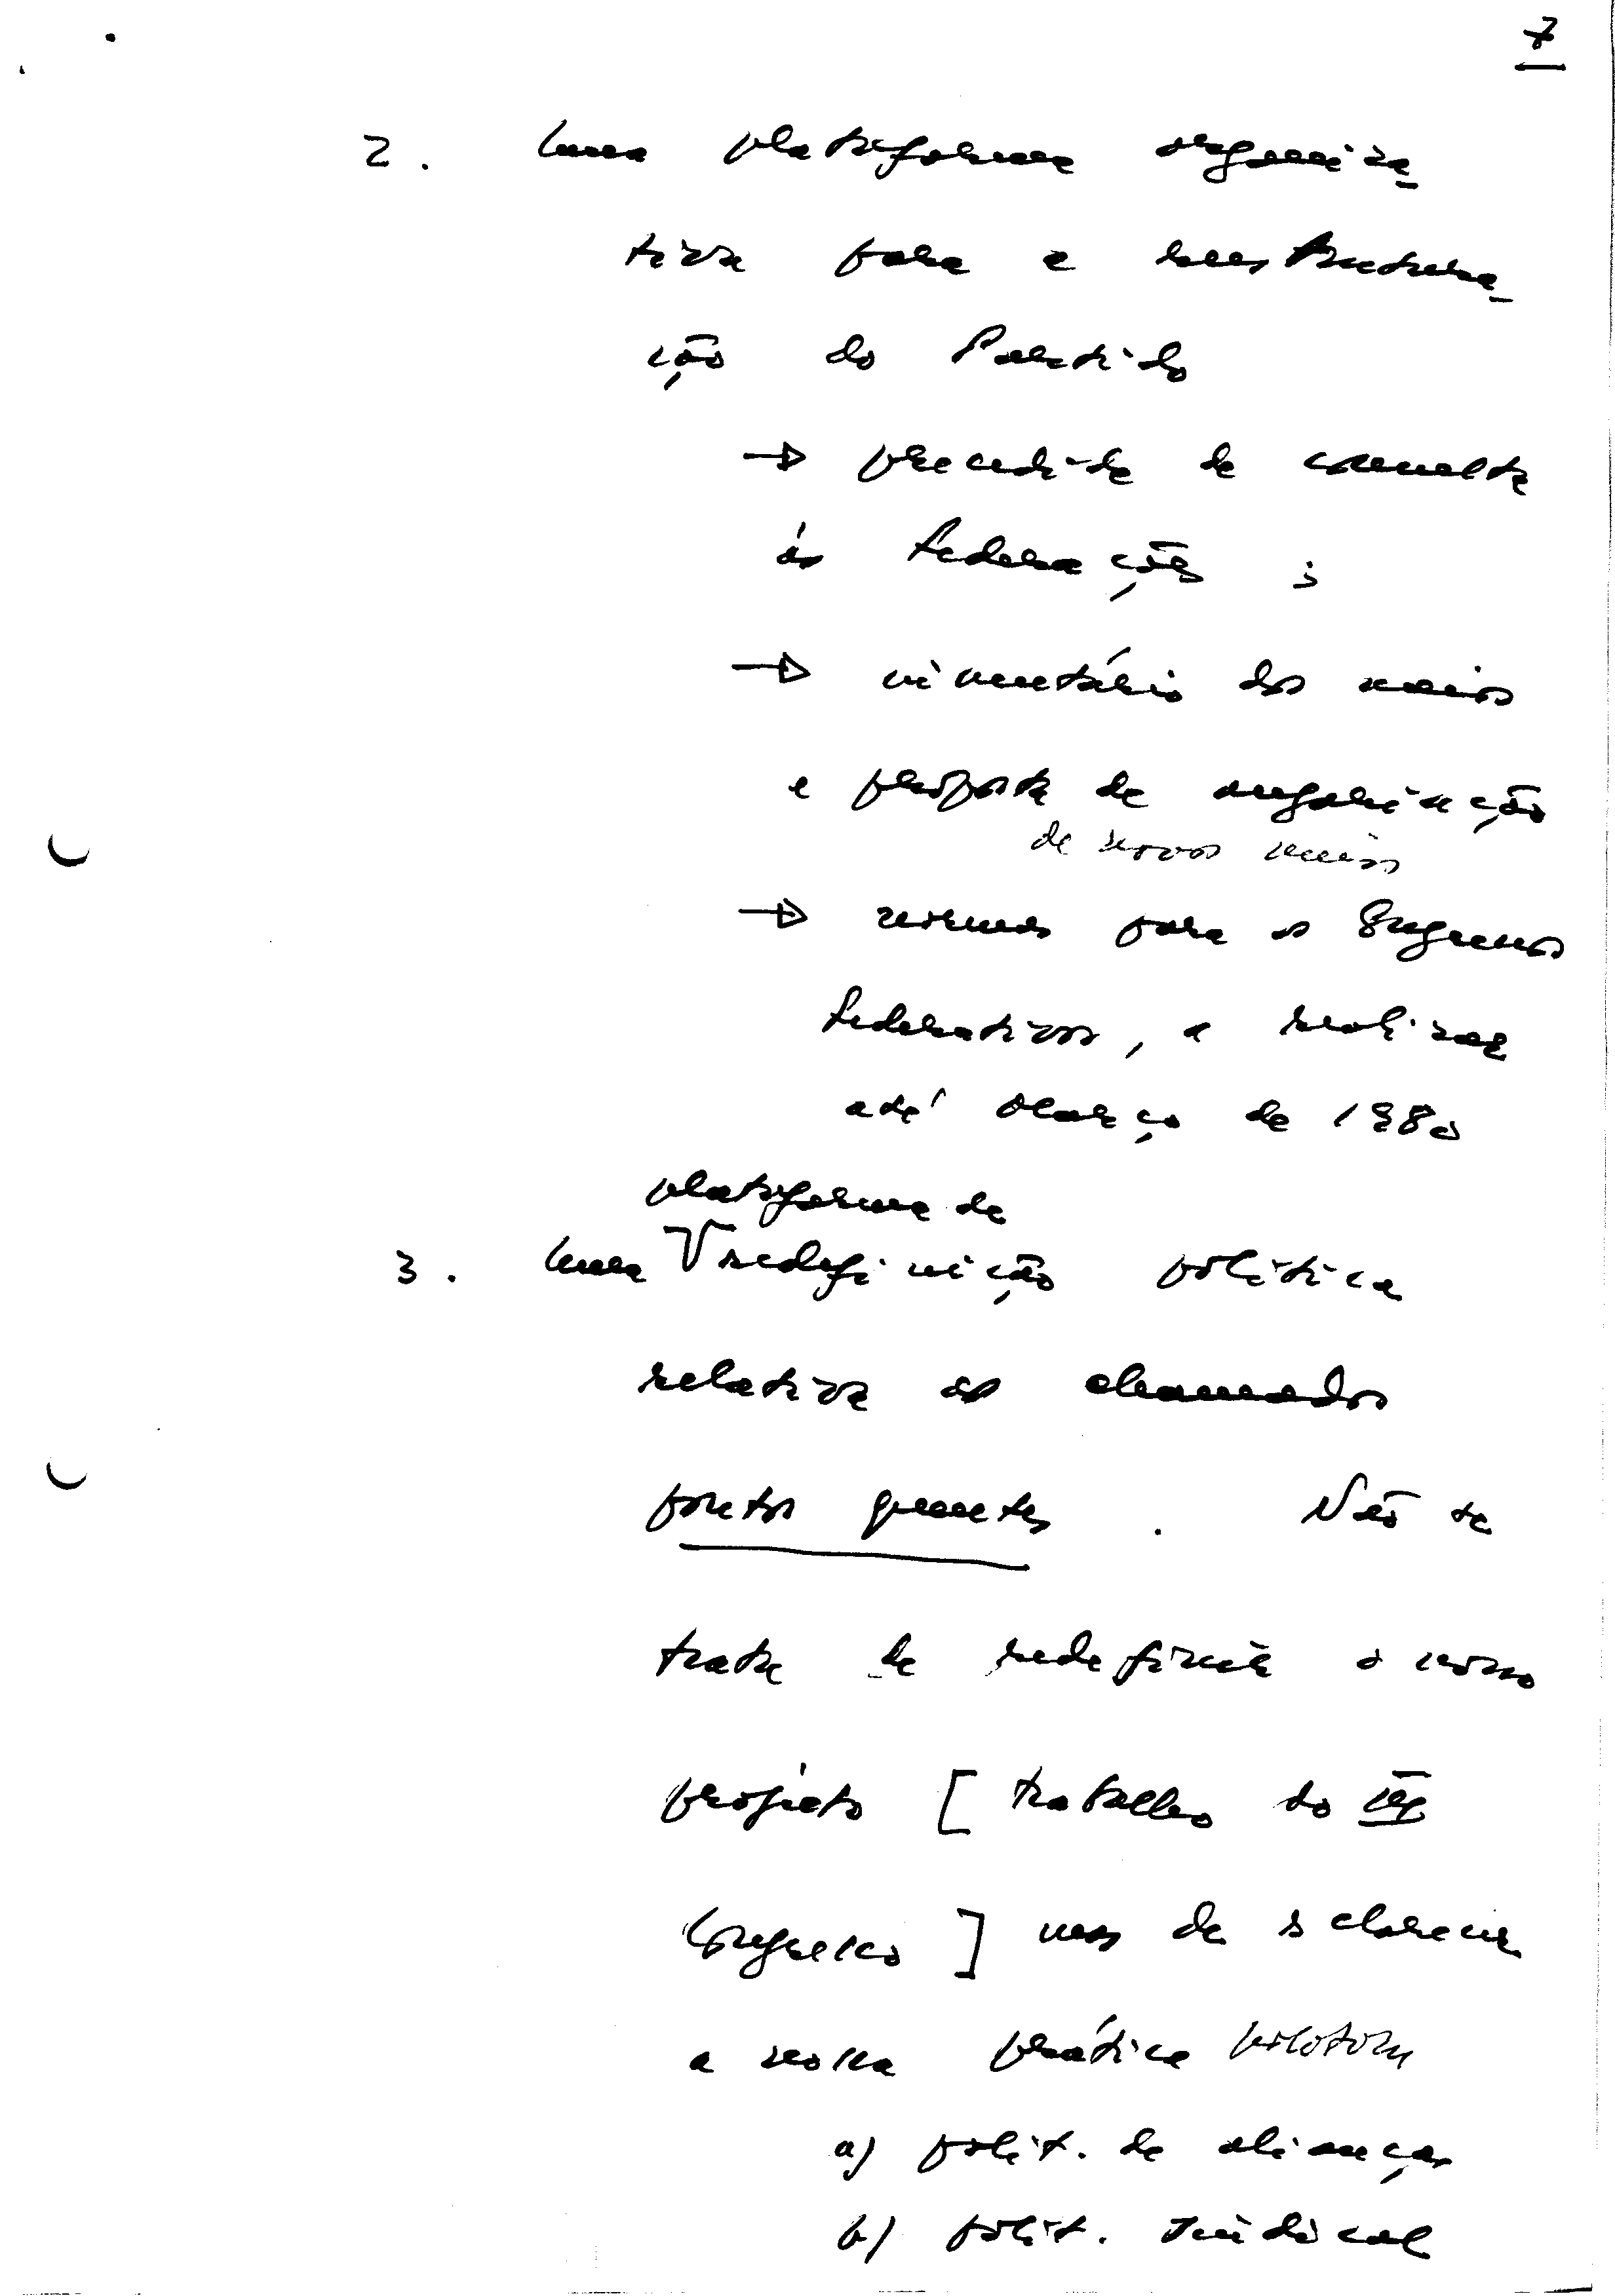 7
2. uma plataforma organiza-
tiva para a reestrutura-
ção do Partido
→ precedida de consulta
às Federações;
→ inventário dos meios
e proposta de angariação
de novos meios
→ normas para os Congressos
Federativos, a realizar
até Março de 1980
plataforma de
3. uma V redefinição política
relativa aos chamados
pontos quentes. Não se
trata de redefinir o nosso
projeto [trabalho do
Congresso] mas de esclarecer
a nossa prática
a) polít. de alianças
b) polít. sindical